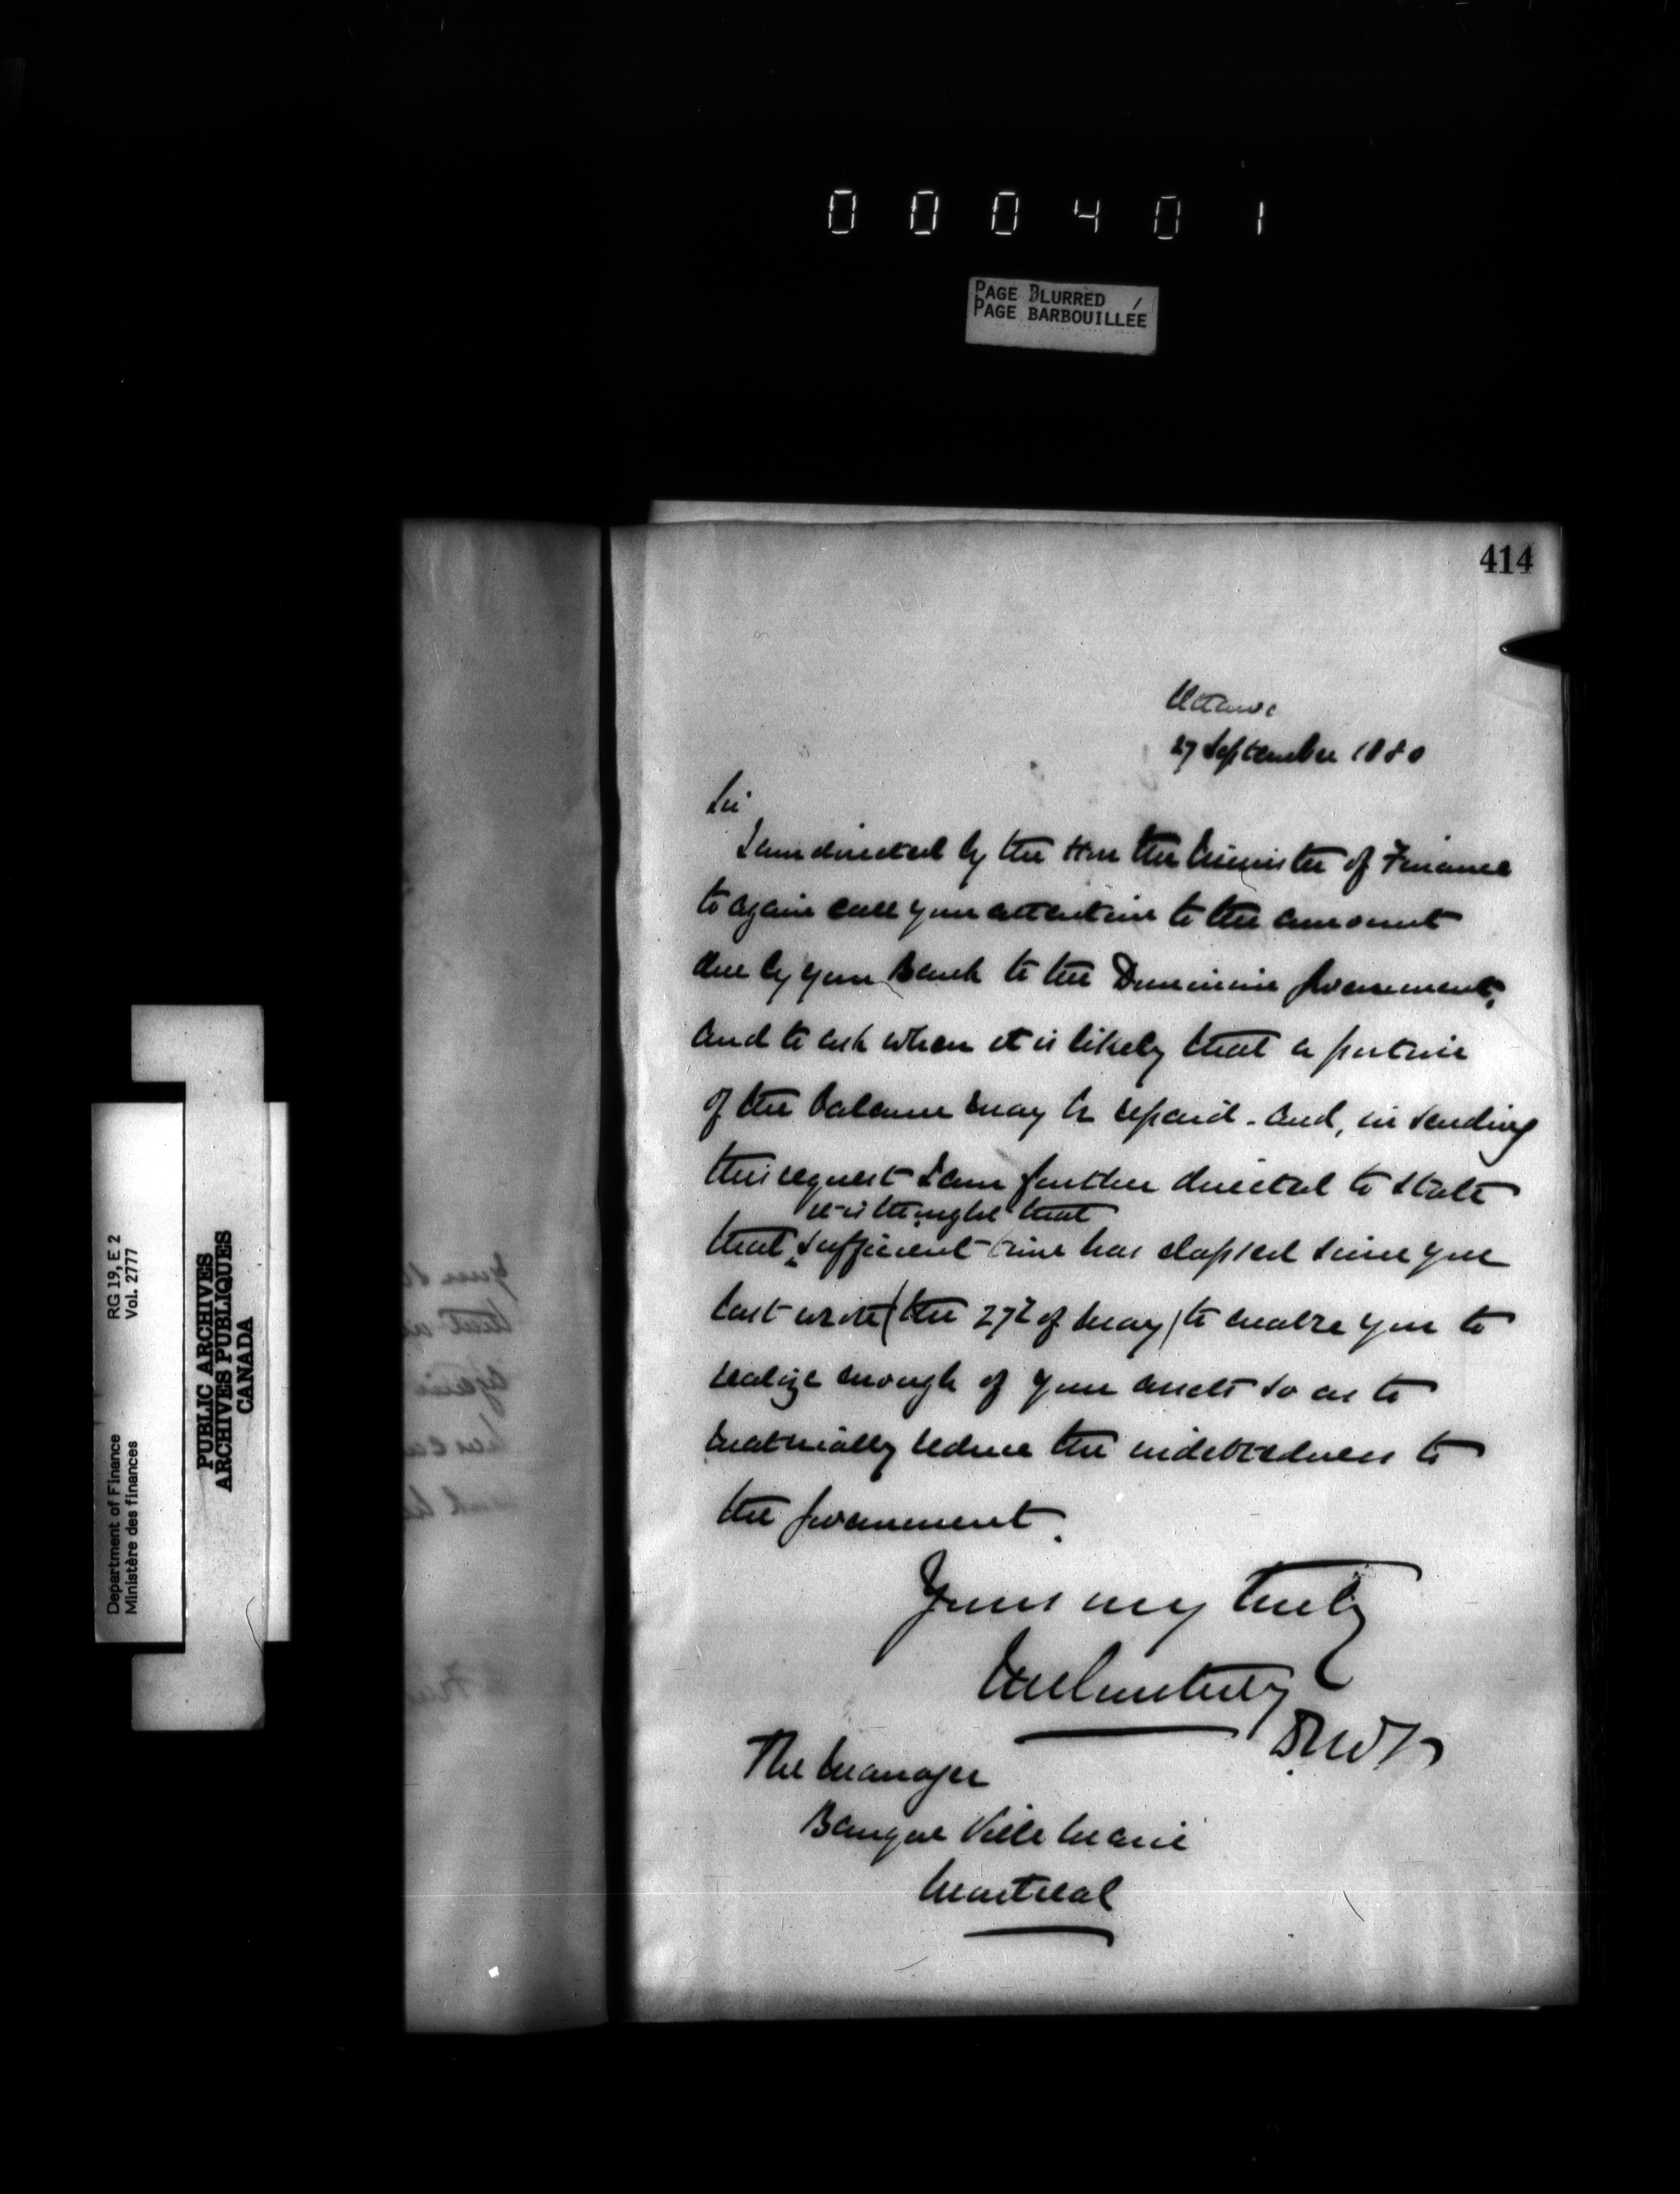 000401
PAGE BLURRED
PAGE BARBOUILLÉE
414
Ottawa
27 September 1880
Sir
I am directed by the Hon the Minister of Finance
to again call your attention to the amount
due by your Bank to the Dominion Government,
and to ask when it is likely that a portion
of the balance may be repaid. and, in sending
this request I am further directed to state
it is thought that
that sufficient time has elapsed since you
last wrote (the 27th of May) to enable you to
realize enough of your assets so as to
materially reduce the indebtedness to
the Government.
Yours very truly
The Manager
Banque Ville Marie
Montreal
Department of Finance RG 19, E 2
Ministère des finances Vol. 2777
PUBLIC ARCHIVES
ARCHIVES PUBLIQUES
CANADA